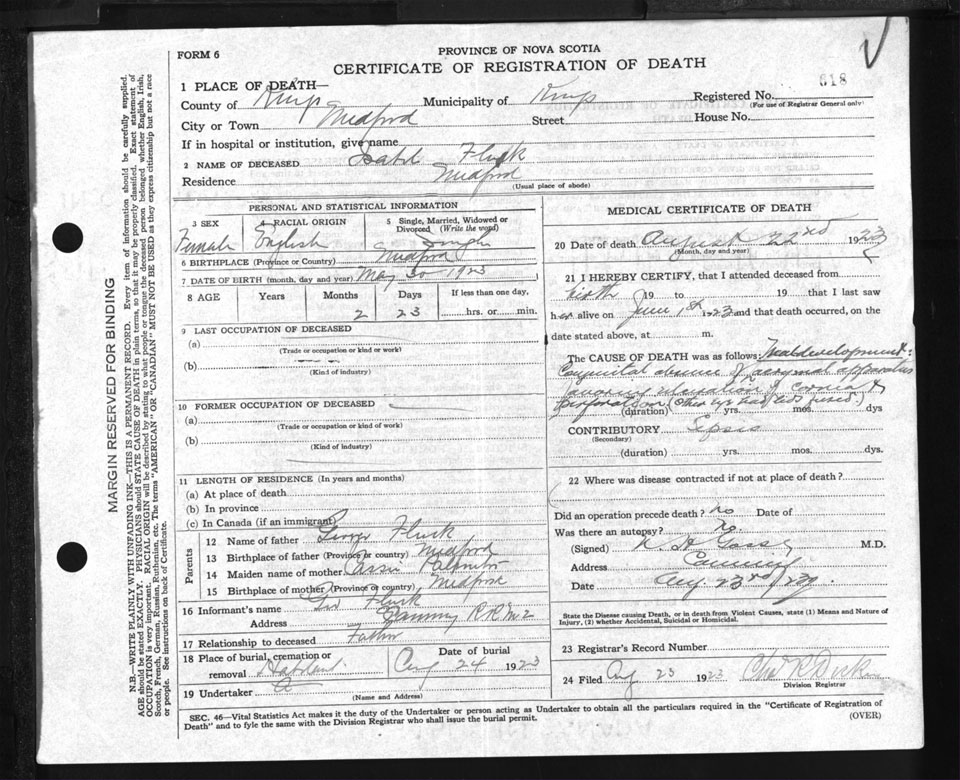 FORM 6
PROVINCE OF NOVA SCOTIA
CERTIFICATE OF REGISTRATION OF DEATH
618
1 PLACE OF DEATH—
County of Kings Municipality of Kings Registered No.
(For use of Registrar General only)
City or Town Medford Street House No.
If in hospital or institution, give name
2 NAME OF DECEASED
Residence Medford
(Usual place of abode)
PERSONAL AND STATISTICAL INFORMATION
3 SEX 4 RACIAL ORIGIN 5 Single, Married, Widowed or Divorced (Write the word)
Female English Single
6 BIRTHPLACE (Province or Country) Medford
7 DATE OF BIRTH (month, day and year) May 30 1923
8 AGE Years Months Days If less than one day,
2 23 hrs. or min.
9 LAST OCCUPATION OF DECEASED
(a)
(Trade or occupation or kind or work)
(b)
(Kind of industry)
10 FORMER OCCUPATION OF DECEASED
(a)
(Trade or occupation or kind of work)
(b)
(Kind of industry)
11 LENGTH OF RESIDENCE (In years and months)
(a) At place of death
(b) In province
(c) In Canada (if an immigrant)
Parents
12 Name of father George
13 Birthplace of father (Province or country) Medford
14 Maiden name of mother
15 Birthplace of mother (Province or country) Medford
16 Informant's name Geo
Address R.R. No 2
17 Relationship to deceased Father
18 Place of burial, cremation or removal Date of burial
Aug 24 1923
19 Undertaker
(Name and Address)
MEDICAL CERTIFICATE OF DEATH
20 Date of death August 22nd 1923
(Month, day and year)
21 I HEREBY CERTIFY, that I attended deceased from
birth 19 to 19 that I last saw
her alive on June 1st 1923 and that death occurred, on
date stated above, at m.
The CAUSE OF DEATH was as follows: Maldevelopment:
Congenital absence of apparatus
ulceration of cornea &
perforation
(duration) yrs. mos. dys
CONTRIBUTORY Sepsis
(Secondary)
(duration) yrs. mos. dys.
22 Where was disease contracted if not at place of death?
Did an operation precede death? No Date of
Was there an autopsy? No.
(Signed) M.D.
Address Canning
Date Aug 23rd/23
State the Disease causing Death, or in death from Violent Causes, state (1) Means and Nature of
Injury, (2) whether Accidental, Suicidal or Homicidal.
23 Registrar's Record Number
24 Filed Aug 23 1923
Division Registrar
SEC. 46—Vital Statistics Act makes it the duty of the Undertaker or person acting as Undertaker to obtain all the particulars required in the "Certificate of Registration of
Death" and to fyle the same with the Division Registrar who shall issue the burial permit.
(OVER)
MARGIN RESERVED FOR BINDING
N.B.—WRITE PLAINLY WITH UNFADING INK—THIS IS A PERMANENT RECORD. Every item of information should be carefully supplied.
AGE should be stated EXACTLY. PHYSICIANS should STATE CAUSE OF DEATH in plain terms, so that it may be properly classified. Exact statement of
OCCUPATION is very important. RACIAL ORIGIN will be described by stating to what people or tongue the deceased person belonged whether English, Irish,
Scotch, French, German, Russian, Ruthenian, etc. The terms "AMERICAN" or "CANADIAN" MUST NOT BE USED as they express citizenship but not a race
or people. See instructions on back of Certificate.